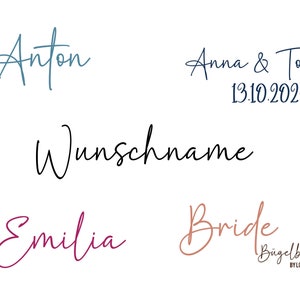 Anton
Anna & To
13.10.202
Wunschname
Emilia
Bride
Bügelb
BY L